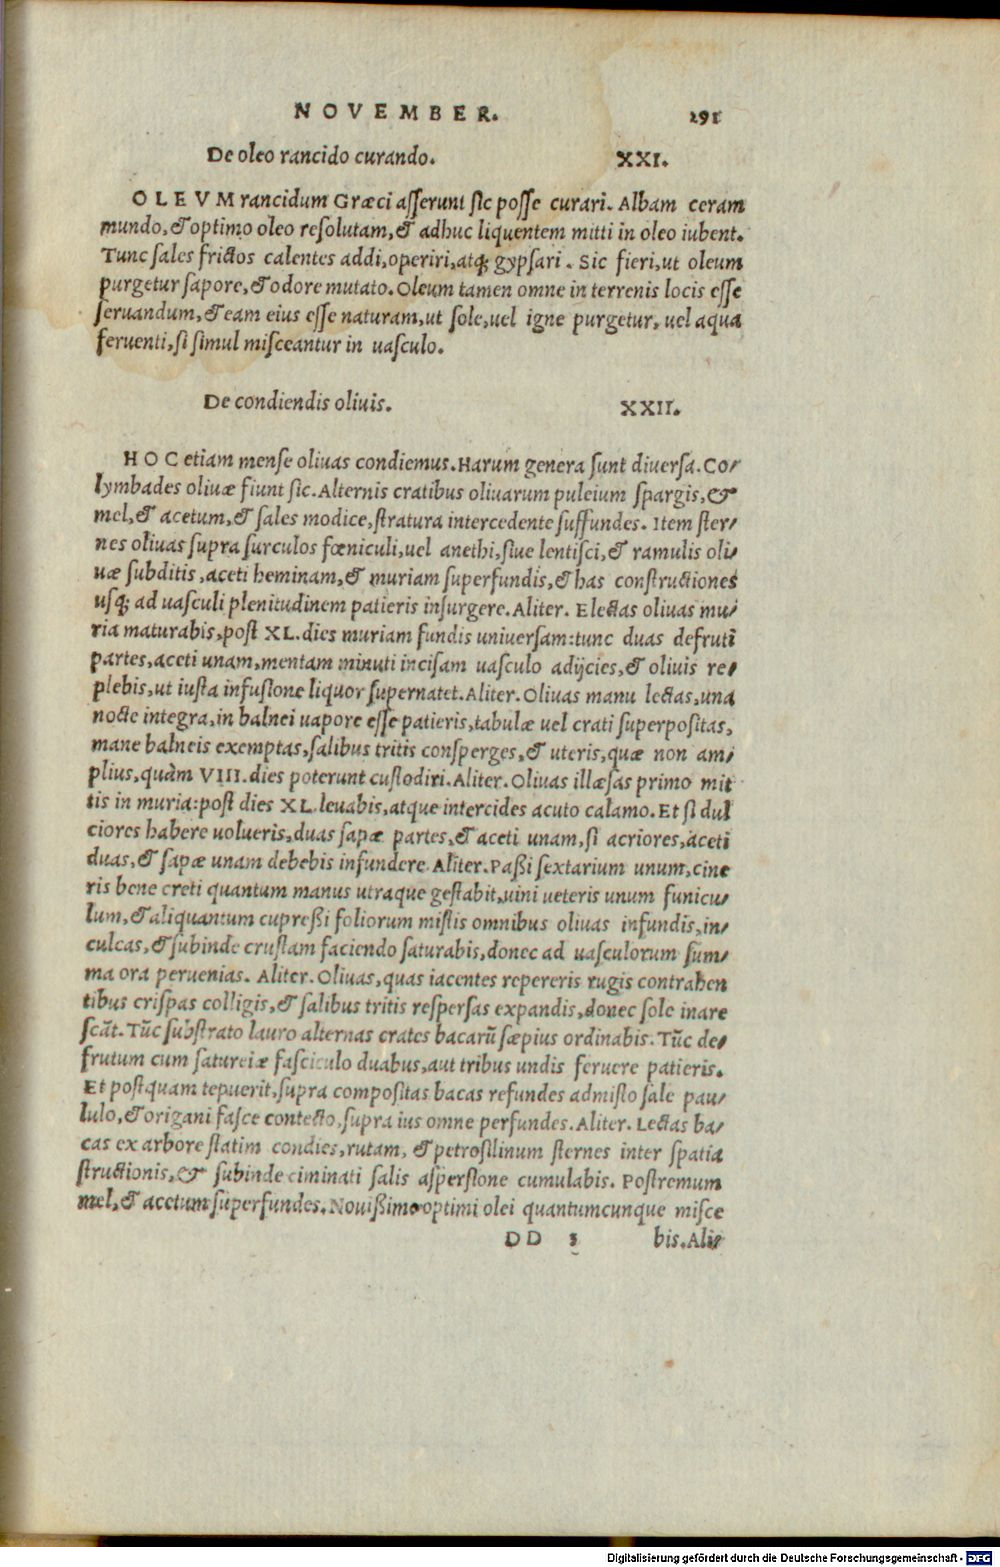 NOVEMBER. 291
De oleo rancido curando. XXI.
OLEVM rancidum Græci aſſerunt ſic poſſe curari. Albam ceram
mundo, & optimo oleo reſolutam, & adhuc liquentem mitti in oleo iubent.
Tunc ſales frictos calentes addi, operiri, atq; gypſari. Sic fieri, ut oleum
purgetur ſapore, & odore mutato. Oleum tamen omne in terrenis locis eſſe
ſeruandum, & eam eius eſſe naturam, ut ſole, uel igne purgetur, uel aqua
feruenti, ſi ſimul miſceantur in uaſculo.
De condiendis oliuis. XXII.
HOC etiam menſe oliuas condiemus. Harum genera ſunt diuerſa. Co-
lymbades oliuæ fiunt ſic. Alternis cratibus oliuarum puleium ſpargis, &
mel, & acetum, & ſales modice, ſtratura intercedente ſuffundes. Item ſter-
nes oliuas ſupra ſurculos fœniculi, uel anethi, ſiue lentiſci, & ramulis oli-
uæ ſubditis, aceti heminam, & muriam ſuperfundis, & has conſtructiones
uſq; ad uaſculi plenitudinem patieris inſurgere. Aliter. Electas oliuas mu-
ria maturabis, poſt XL. dies muriam fundis uniuerſam: tunc duas defruti
partes, aceti unam, mentam minuti inciſam uaſculo adijcies, & oliuis re-
plebis, ut iuſta infuſione liquor ſupernatet. Aliter. Oliuas manu lectas, una
nocte integra, in balnei uapore eſſe patieris, tabulæ uel crati ſuperpoſitas,
mane balneis exemptas, ſalibus tritis conſperges, & uteris, quæ non am-
plius, quàm VIII. dies poterunt cuſtodiri. Aliter. Oliuas illæſas primo mit
tis in muria: poſt dies XL. leuabis, atque intercides acuto calamo. Et ſi dul
ciores habere uolueris, duas ſapæ partes, & aceti unam, ſi acriores, aceti
duas, & ſapæ unam debebis infundere. Aliter. Paßi ſextarium unum, cine
ris bene creti quantum manus utraque geſtabit, uini ueteris unum funicu-
lum, & aliquantum cupreßi foliorum miſtis omnibus oliuas infundis, in-
culcas, & ſubinde cruſtam faciendo ſaturabis, donec ad uaſculorum ſum-
ma ora peruenias. Aliter. Oliuas, quas iacentes repereris rugis contrahen
tibus criſpas colligis, & ſalibus tritis reſperſas expandis, donec ſole inare
ſcāt. Tūc ſubſtrato lauro alternas crates bacarū ſæpius ordinabis. Tūc de-
frutum cum ſatureiæ faſciculo duabus, aut tribus undis feruere patieris.
Et poſtquam tepuerit, ſupra compoſitas bacas refundes admiſto ſale pau-
lulo, & origani faſce contecto, ſupra ius omne perfundes. Aliter. Lectas ba-
cas ex arbore ſtatim condies, rutam, & petroſilinum ſternes inter ſpatia
ſtructionis, & ſubinde ciminati ſalis aſperſione cumulabis. Poſtremum
mel, & acetum ſuperfundes. Nouißimo optimi olei quantumcunque miſce
DD 3 bis. Ali-
Digitalisierung gefördert durch die Deutsche Forschungsgemeinschaft - DFG